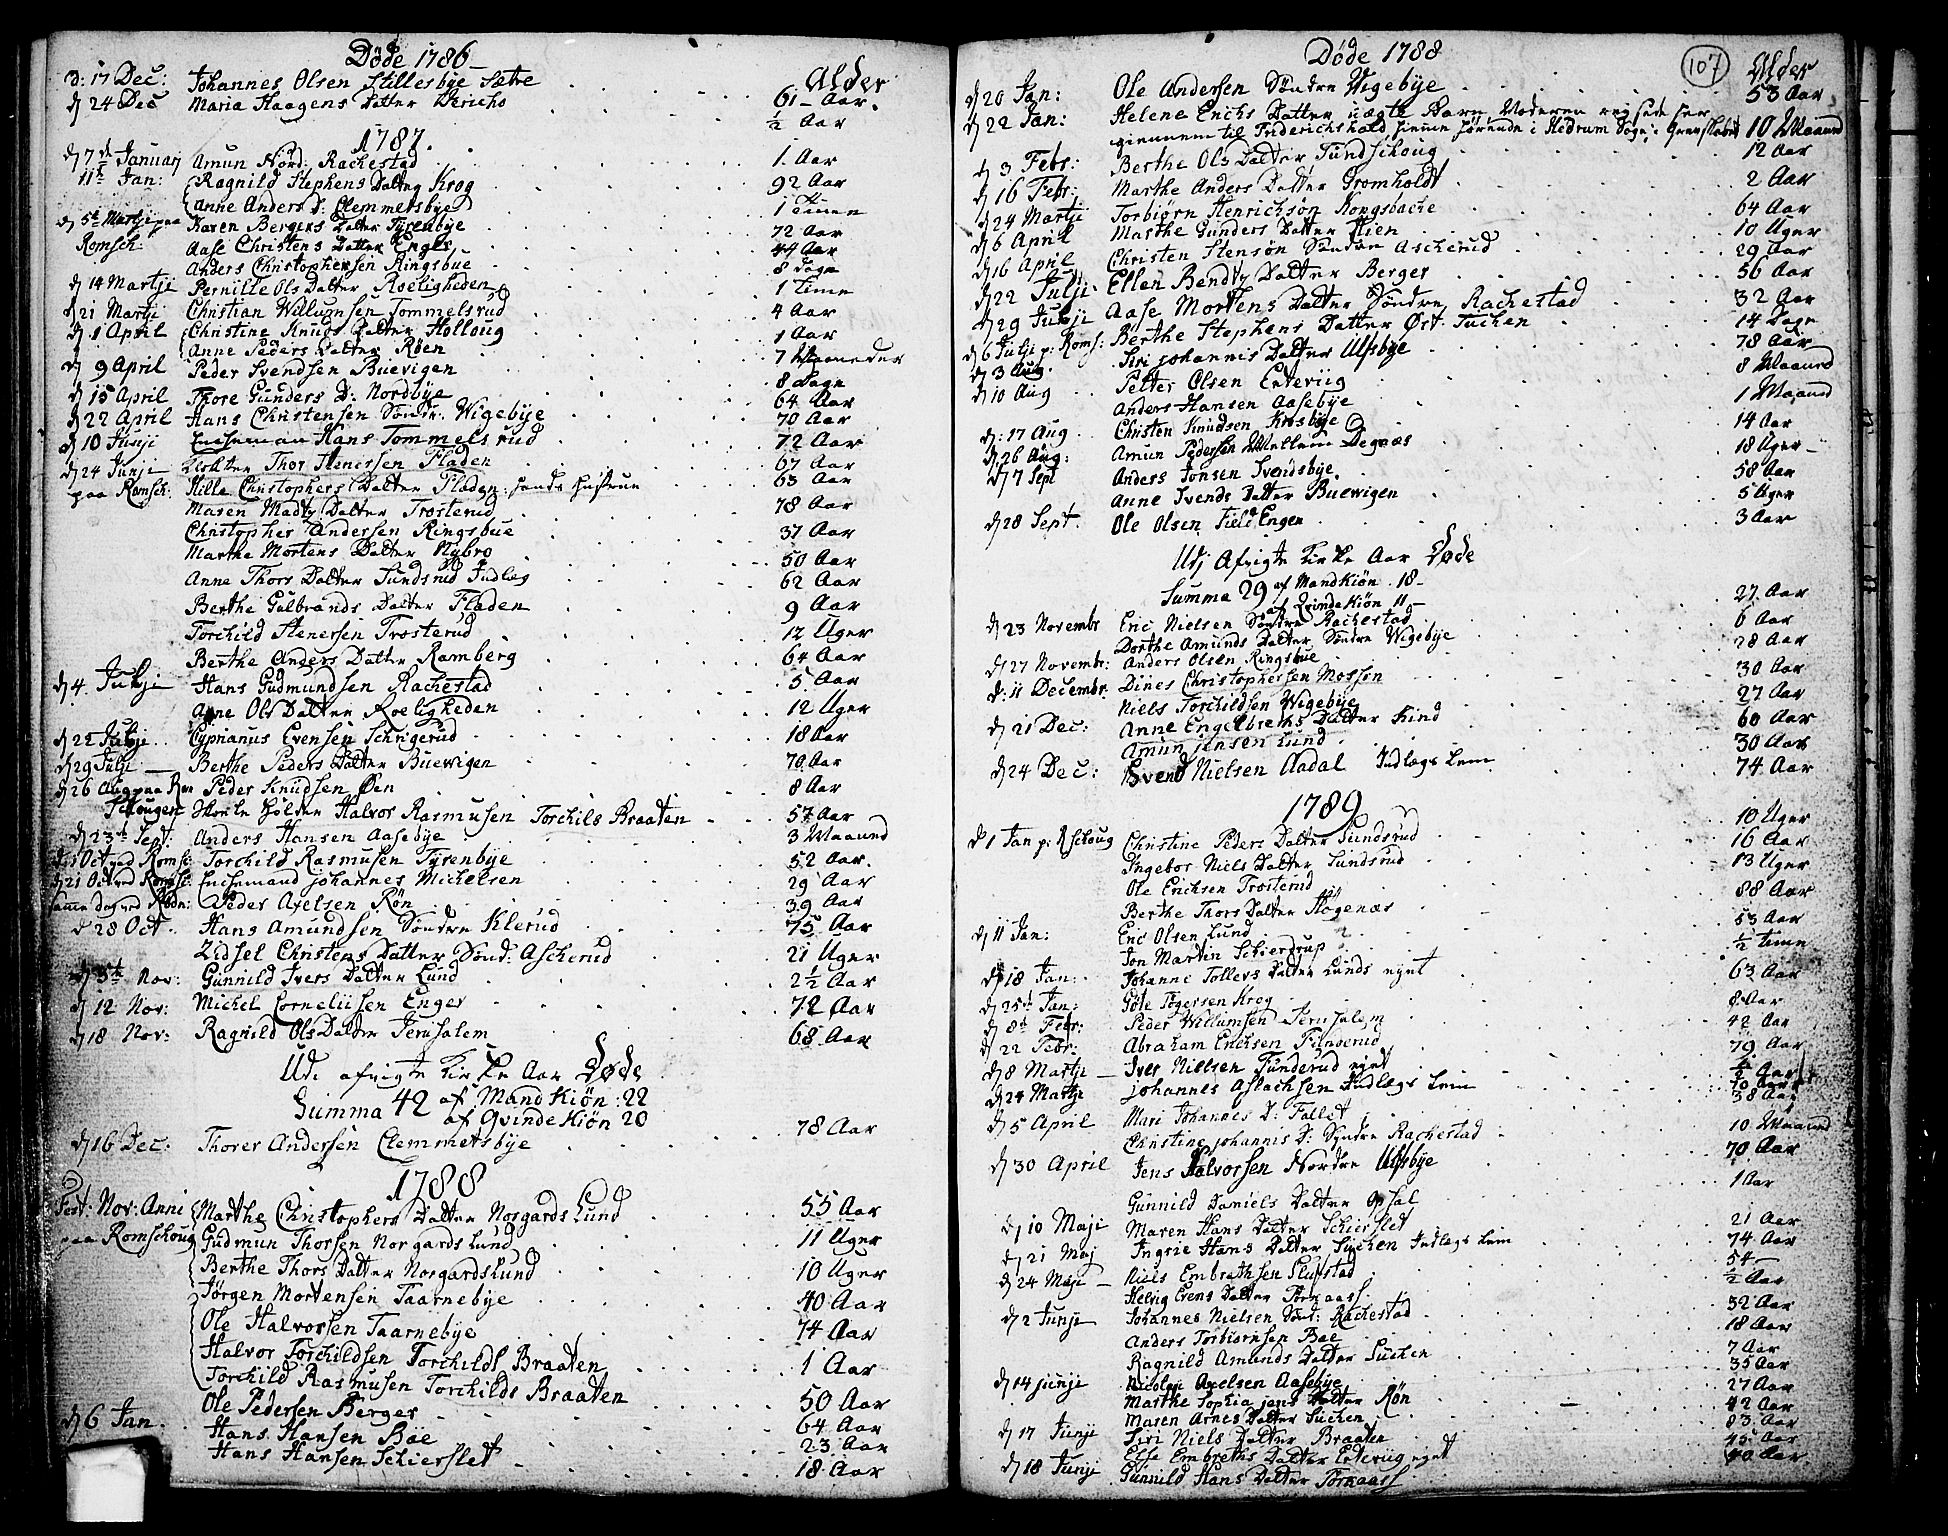 Døde 1786
Alder
d: 17 Dec: Johannes Olsen Stillesbye Sætre 61 Aar.
d 24 Dec Maria Haagens Datter Jericho ½ Aar
1787.
d 7de Januarj Amun Nörd: Rachestad 1 Aar
11te Jan: Ragnild Stephens Datter Krog 92 Aar
Anne Anders D: Clemmetsbye 1 time
d 5te Martji paa Karen Bergers Datter Tyrenbye 72 Aar
Romsch: Aase Christens Datter Enger 44 Aar
Anders Christophersen Ringsbue 8 Dage
d 14 Martji Pernille Ols Datter Roeligheden 1 time
d 21 Martji Christian Willumsen Tommelsrud 4 Aar
d 1 April Christine Knuds Datter Holloug 1 Aar
Anne Peders Datter Röen 7 Maaneder
d 9 April Peder Svendsen Buevigen 8 Dage
d 15 April Thore Gunders D: Nordbye 64 Aar
d 22 April Hans Christensen Söndr: Wigebye 70 Aar
d 10 Junji Encheman Hans Tommelsrud 72 Aar
d 24 Junji Thor Stenersen Fladen 67 Aar
paa Romsch: Hille Christophers Datter Fladen: hands Hustrue 63 Aar
Maren Madtz Datter Trosterud 78 Aar
Christopher Andersen Ringsbue 37 Aar
Marthe Mortens Datter Nybro 50 Aar
Anne Thors Datter Sundsrud Indlæg 62 Aar
Berthe Gulbrands Datter Fladen 9 Aar
Torchild Stenersen Trosterud 12 Uger
Berthe Anders Datter Ramberg 64 Aar
d 4 Julji Hans Gudmundsen Rachestad 5 Aar
Anne Ols Datter Roeligheden 12 Uger
d 22 Julji Cyprianus Evensen Schrigerud 18 Aar
d 29 Julji Berthe Peders Datter Buewigen 70 Aar
d 26 Aug paa Röe Peder Knudsen Öen 8 Aar
Halvor Rasmusen Torchils Braaten 57 Aar
d 23de Sept: Anders Hansen Aasebye 3 Maaned
Oct ved Romsc: Torchild Rasmusen Tyrenbye 52 Aar.
d 21 Oct ved Romsc: Enchemand Johannes Michelsen 29 Aar
samme Dag ved Röde: Peder Axelsen Rön 39 Aar
d 28 Oct. Hans Amundsen Sondre Klerud 75 Aar
Zidsel Christens Datter Sönd: Ascherud 21 Uger
d 5te Nov: Gunnild Ivers Datter Lund 2½ Aar
d 12 Nov: Michel Corneliisen Enger 72 Aar
d 18 Nov: Ragnild Ols Datter Jerusalem 68 Aar
Udi afvigte Kirke Aar Døde
Summa 42 af Mand Kiön: 22
af Qvinde Kiön 20
d 16 Dec: Thorer Andersen Clemmetsbye 78 Aar
1788
Fest: Nov: Anni Marthe Christophers Datter Norgards Lund 55 Aar
paa Romschoug Gudmun Thorsen Norgards Lund 11 Uger
Berthe Thors Datter Norgardslund 10 Uger
Jörgen Mortensen Taarnebye 40 Aar
Ole Halvorsen Taarnebye 74 Aar
Halvor Torchildsen Torchilds Braaten 1 Aar
Torchild Rasmusen Torchilds Braaten 50 Aar
Ole Pedersen Berger 64 Aar
d 6 Jan. Hans Hansen Böe 23 Aar
Hans Hansen Schierslet 18 Aar
Døde 1788
107
Alder
d 20 Jan: Ole Andersen Söndre Wigebye 53 Aar
d 22 Jan: Helene Erichs Datter uægte Barn, Moderen reisede her
giennem til Friderichshald hiemme hörende i Hedrum Sogn i Grevskabet 10 Maaned
d 3 Febr: Berthe Ols Datter Tundschoug 12 Aar
d 16 Febr: Marthe Anders Datter Gromholdt 2 Aar
d 24 Martji Torbiørn Henrichsön Kongsbache 64 Aar
d 6 April Marthe Gunders Datter Hien 10 Uger
d 16 April Christen Stensön Söndre Ascherud 29 Aar
d 22 Julji Ellen Bendtz Datter Berger 50 Aar
d 29 Julji Aase Mortens Datter Söndre Rachestad 32 Aar
d 6 Julji p: Roms: Berthe Stephens Datter Øst: Tuchen 14 Dage
d 3 Aug. Siri Johannis Datter Ulfsbye 78 Aar
d 10 Aug Petter Olsen Erteviig 8 Maaned
Anders Hansen Aasebye 1 Maaned
d: 17 Aug Christen Knudsen Krosbye 14 Aar
d 26 Aug: Amun Pedersen Mellem Degnæs 18 Uger
d 7 Sept Anders Jonsen Svendsbye 58 Aar
Anne Svends Datter Buewigen 5 Uger
d 28 Sept. Ole Olsen Field Engen 3 Aar
Udj Afvigte Kirke Aar Døde
Summa 29 af Mand Kiön 18
af Qvinde Kiön 11
d 23 Novembr Eric Nielsen Söndre Rachestad 27 Aar
Dorthe Amunds Datter Söndre Wigebye 6 Aar
d 27 Novembr: Anders Olsen Ringsbue 28 Aar
d: 11 Decembr. Dines Christophersen Mossen 30 Aar
Niels Torchildsen Wigebye 27 Aar
d 21 Dec: Anne Engelbreths Datter Kind 60 Aar
Amun Jensen Lund 30 Aar
d 24 Dec: Svend Nielsen Aadal Indlægs Lem 74 Aar
1789
d 1 Jan p: Rschoug Christine Peders Datter Sundsrud 10 Uger
Ingebor Niels Datter Sundsrud 16 Aar
Ole Erichsen Trosterud 13 Uger
Berthe Thors Datter Högenæs 88 Aar
d 11 Jan: Eric Olsen Lund 53 Aar
Jon Martin Schierdrup ½ time
d 18 Jan: Johanne Tollers Datter Lunds eyet 63 Aar
d 25de Jan: Göte Tögersen Krog 8 Aar
d 8de Febr: Peder Willumsen Jerusalem 42 Aar
d 22 Febr: Abraham Erichsen Funderud 79 Aar
d 8 Martji Iver Nielsen Funderud eyet ½ Aar
d 24 Martji Johannes Aslachsen Indlægs Lem 70 Aar
d 5 April Mari Johannes D: Fallet 38 Aar
Christine Johannis D: Syndre Rachestad 10 Maaned
d 30 April Jens Halvorsen Nordre Ulfsbye 70 Aar
Gunnild Daniels Datter Opsal 1 Aar
d 10 Maji Maren Hans Datter Schierslet 21 Aar
d 21 Maj Ingrie Hans Datter Suchen Indlægs Lem 74 Aar
d 24 Maji Niels Embrethsen Slupstad 54
Helvig Evens Datter Tornaass ½ Aar
d 2 Junji Johannes Nielsen Sönd: Rachestad 32 Aar
Anders Torbiørnsen Böe 18 Aar
Ragnild Amunds Datter Suchen 7 Aar
d 14 Junji Nicolaj Axelsen Aasebye 35 Aar
Marthe Sophia Jens Datter Rön 27 Aar
Maren Arnes Datter Suchen 42 Aar
d 17 Junji Siri Niels Datter Braaten 83 Aar
Esse Embreths Datter Erteviig eyet 45 Aar
d 18 Junji Gunnild Hans Datter Tornaass 40 Aar